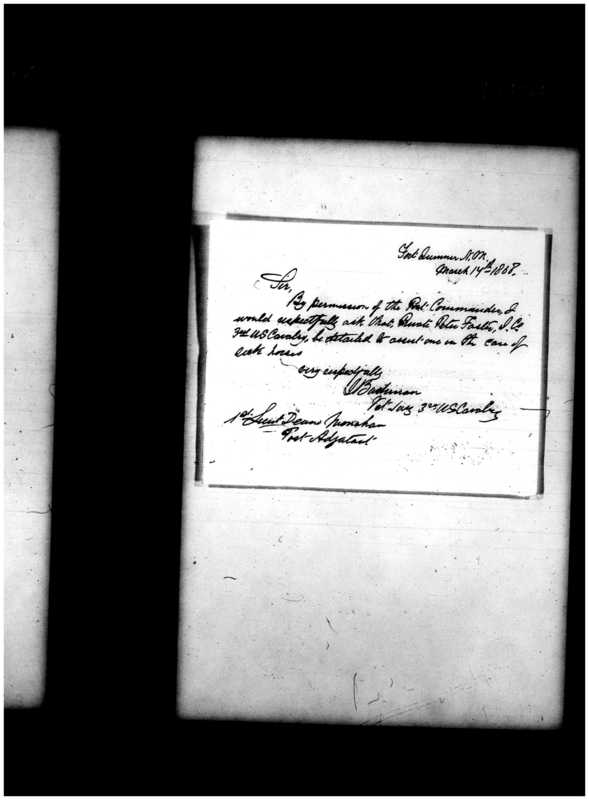 Fort Sumner N.M.
March 14th 1868.
Sir,
By permission of the Post Commander, I
would respectfully ask that, Private Peter Foster, I. Co
3rd US Cavalry, be detailed to assist me in the care of
sick horses
very respectfully
Vet Surg 3rd US Cavalry
1st Lieut Deane Monahan
Post Adjutant